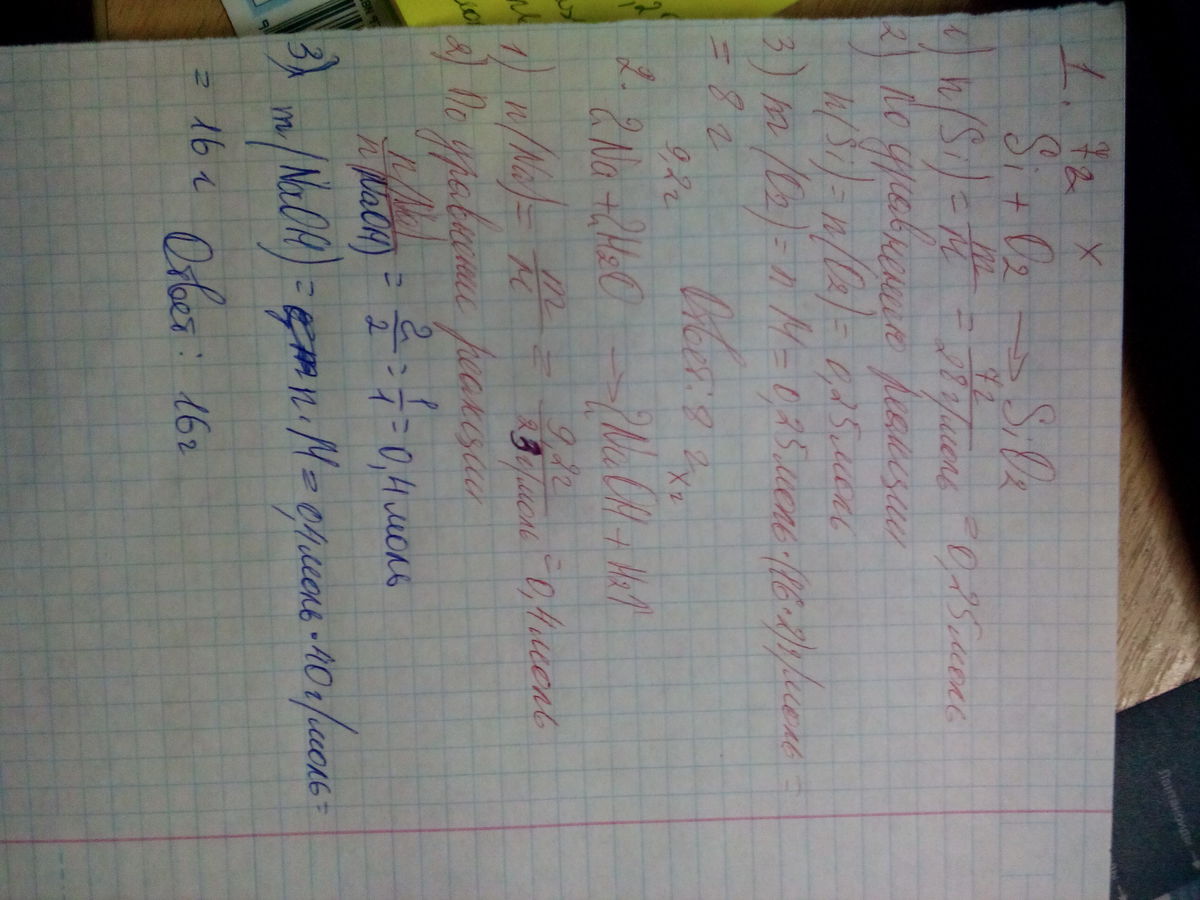 7г х
1. Si + O2 → SiO2
1) n(Si) = m/M = 7г/28г/моль = 0,25моль
2) по уравнению реакции
n(Si) = n(O2) = 0,25моль
3) m(O2) = n M = 0,25моль·(16·2)г/моль =
= 8 г Ответ: 8 г
9,2г хг
2. 2Na + 2H2O → 2NaOH + H2↑
1) n(Na) = m/M = 9,2г/23г/моль = 0,4моль
2) По уравнению реакции
n(Na)/n(NaOH) = 2/2 = 1/1 = 0,4моль
3) m(NaOH) = n·M = 0,4моль·40г/моль =
= 16 г Ответ: 16г